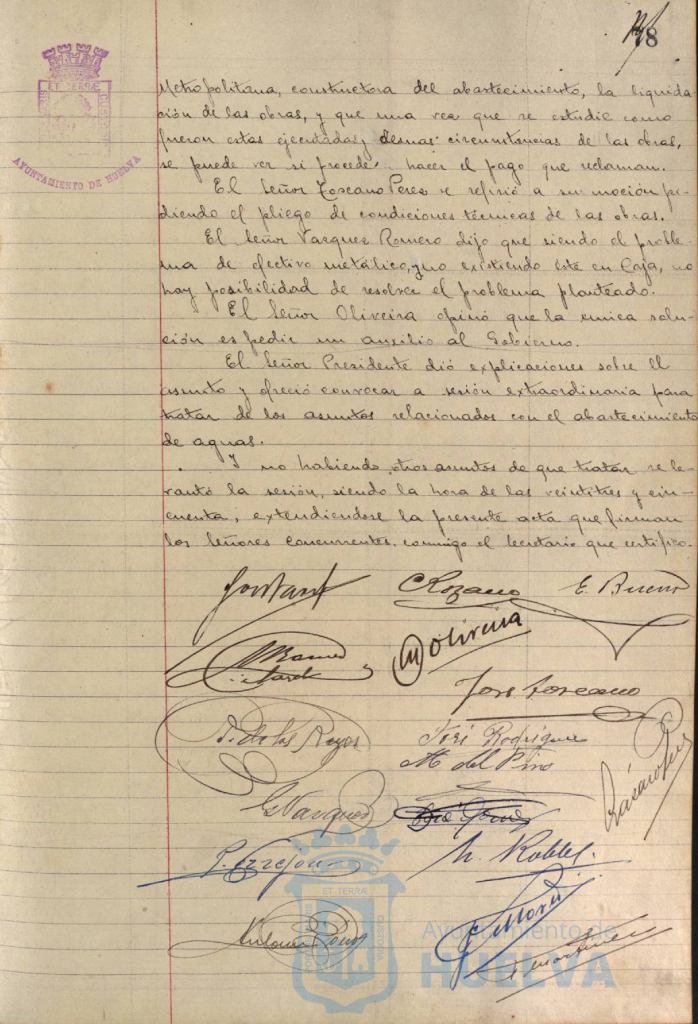 148
ET TERRÆ
AYUNTAMIENTO DE HUELVA
Metropolitana, constructora del abastecimiento, la liquida-
ción de las obras, y que una vez que se estudie como
fueron estas ejecutadas y demas circunstancias de las obras,
se puede ver si procede hacer el pago que reclaman.
El Señor Toscano Perez se refirió a su moción pi-
diendo el pliego de condiciones técnicas de las obras.
El Señor Vazquez Romero dijo que siendo el proble-
ma de efectivo metálico, y no existiendo éste en Caja, no
hay posibilidad de resolver el problema planteado.
El Señor Oliveira opinó que la unica solu-
ción es pedir un auxilio al Gobierno.
El Señor Presidente dió explicaciones sobre el
asunto y ofreció convocar a sesión extraordinaria para
tratar de los asuntos relacionados con el abastecimiento
de aguas.
Y no habiendo otros asuntos de que tratar se le-
vantó la sesión, siendo la hora de las veintitres y cin-
cuenta, extendiendose la presente acta que firman
los Señores concurrentes conmigo el Secretario que certifico.
E. Bueno
M Oliveira
José Toscano
J. de los Reyes
José Rodriguez
M. del Pino
G Vazquez
José Gomez
M. Robles
ET TERRÆ
Ayuntamiento de
HUELVA